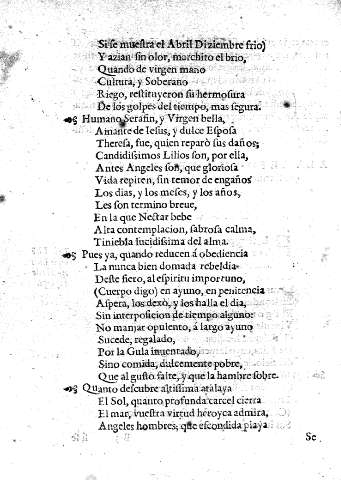 Si se muestra el Abril Diziembre frio)
Y azian sin olor, marchito el brio,
Quando de virgen mano
Cultura, y Soberano
Riego, restituyeron su hermosura
De los golpes del tiempo, mas segura.
Humano Serafin, y Virgen bella,
Amante de Iesus, y dulce Esposa
Theresa, fue, quien reparò sus daños;
Candidissimos Lilios son, por ella,
Antes Angeles son, que gloriosa
Vida repiten, sin temor de engaños
Los dias, y los meses, y los años,
Les son termino breue,
En la que Nectar bebe
Alta contemplacion, sabrosa calma,
Tiniebla lucidissima del alma.
Pues ya, quando reducen á obediencia
La nunca bien domada rebeldia
Deste fiero, al espiritu importuno,
(Cuerpo digo) en ayuno, en penitencia
Aspera, los dexò, y los halla el dia,
Sin interposicion de tiempo alguno:
No manjar opulento, á largo ayuno
Sucede, regalado,
Por la Gula inuentado,
Sino comida, dulcemente pobre,
Que al gusto falte, y que la hambre sobre.
Quanto descubre altissima atalaya
El Sol, quanto profunda carcel cierra
El mar, vuestra virtud heroyca admira,
Angeles hombres, que escondida playa
Se